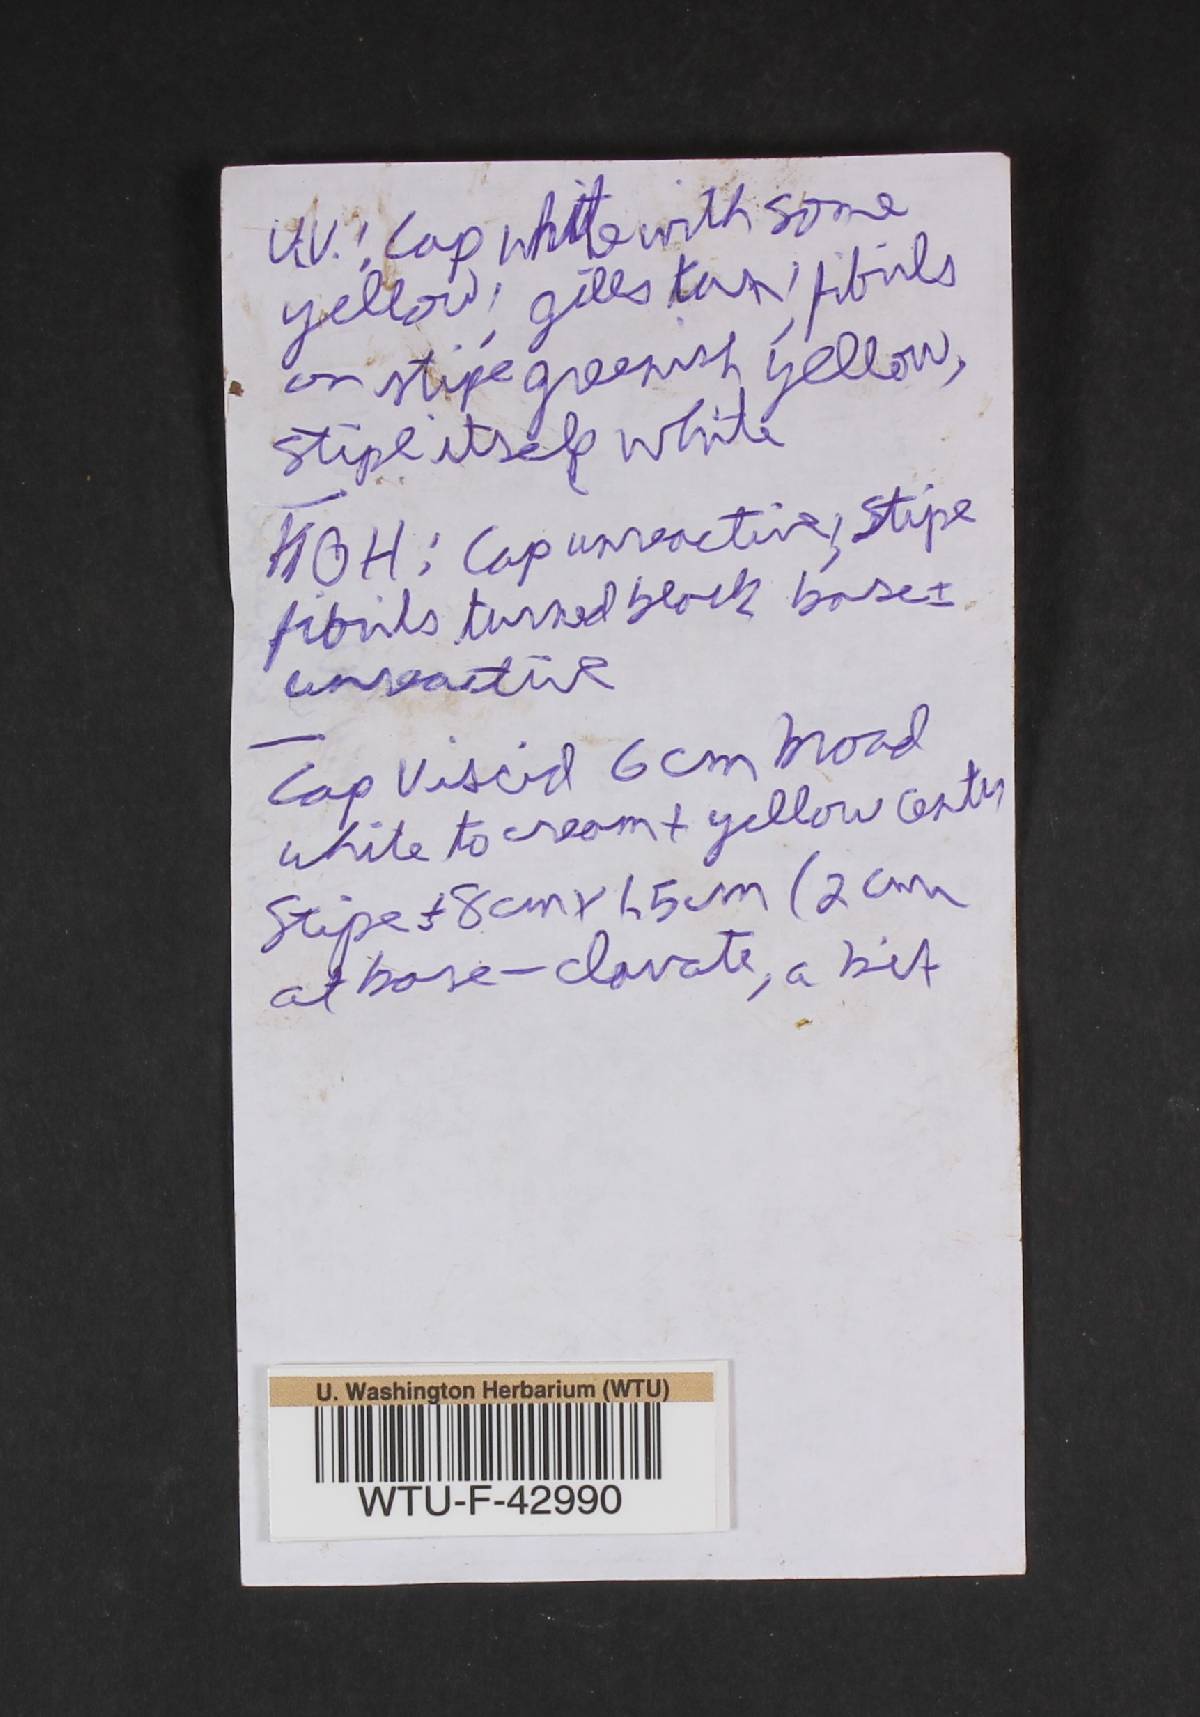 UV: Cap white with some
yellow; gills tan; fibrils
on stipe greenish yellow,
stipe itself white
—
KOH: Cap unreactive; Stipe
fibrils turned black base ±
unreactive
—
Cap viscid 6 cm broad
white to cream + yellow center
Stipe ± 8 cm x 1.5 cm (2 cm
at base – clavate, a bit
U. Washington Herbarium (WTU)
WTU-F-42990